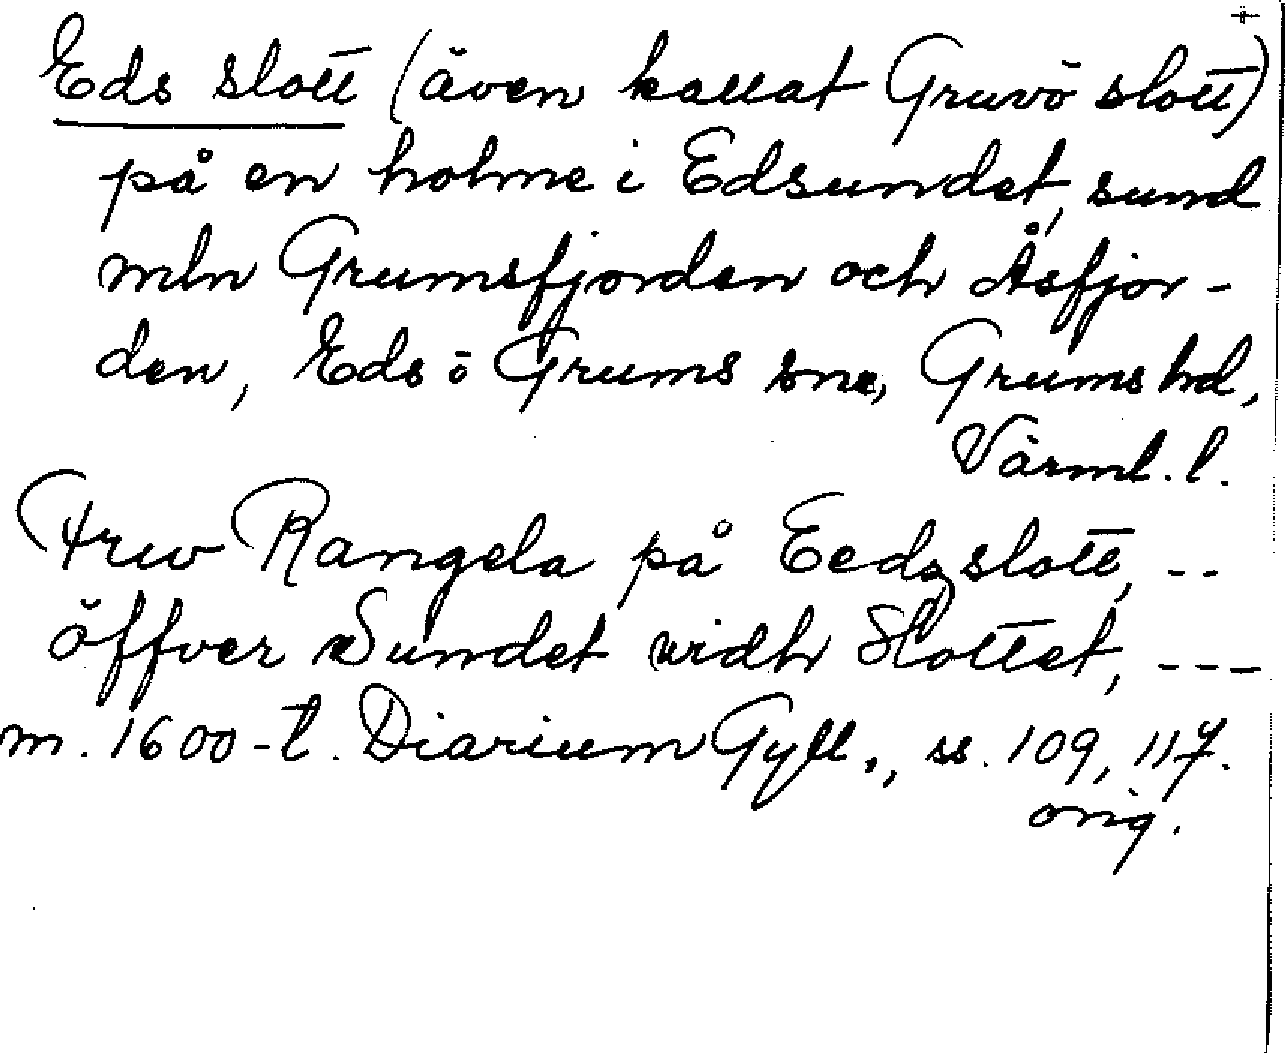 Eds slott (även kallat Gruvö slott)
på en holme i Edsundet, sund
mln Grumsfjorden och Åsfjor-
den, Eds o Grums snr, Grums hd,
Värml. l.
Frw Rangela på Eedzslott, --
öffver Sundet widh Slottet, ---
m. 1600-t. Diarium Gyll., ss. 109, 117.
orig.